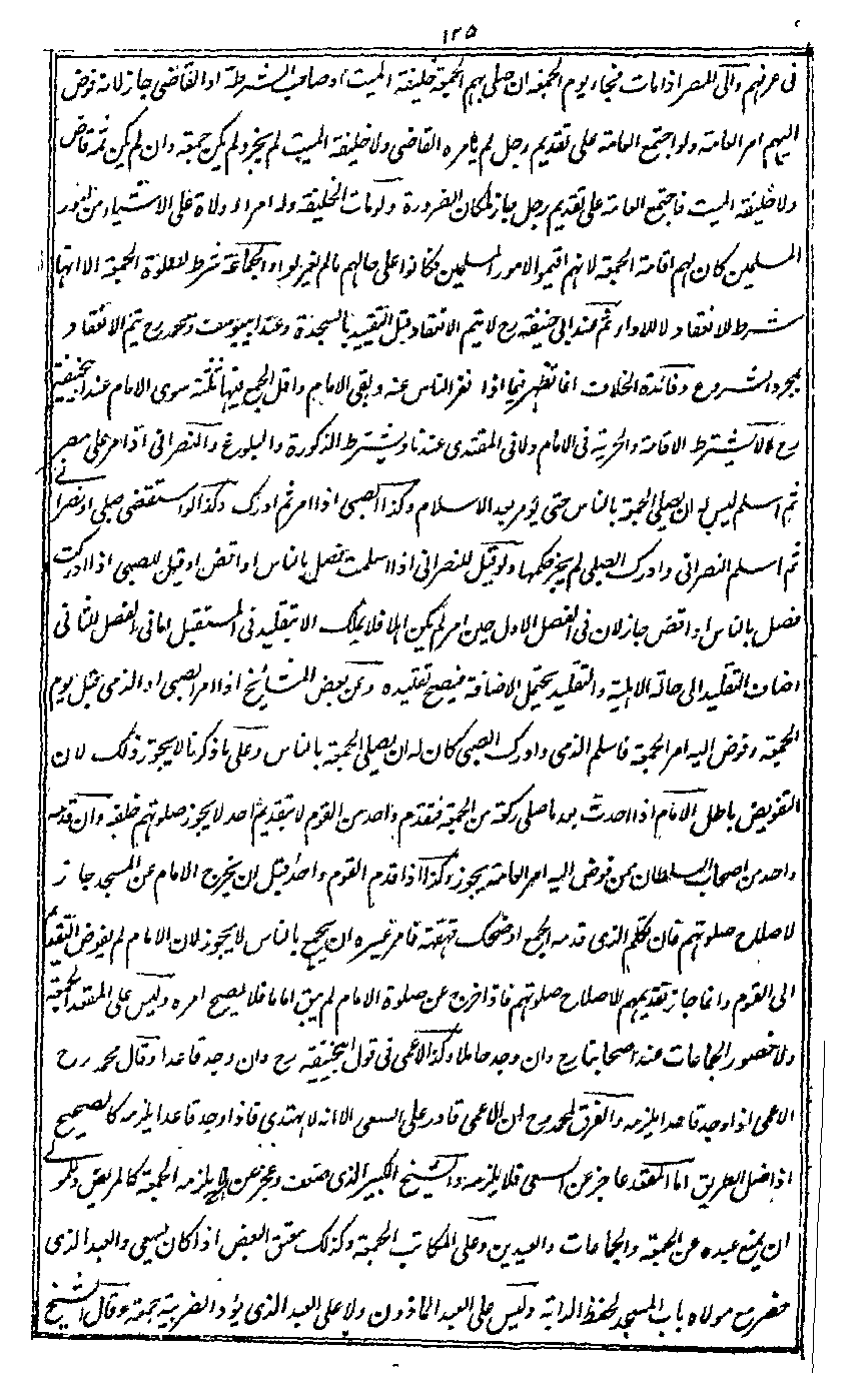 ١٢٥
في عرفهم والي المصر اذا مات فجاء يوم الجمعة ان صلى بهم الجمعة خليفة الميت او صاحب الشرطة او القاضي جاز لانه فوض
اليهم امر العامة ولو اجتمع العامة على تقديم رجل لم يامره القاضي ولا خليفة الميت لم يجز ولم يكن جمعة وان لم يكن ثمة قاض
ولا خليفة الميت فاجتمع العامة على تقديم رجل جاز لمكان الضرورة ولو مات الخليفة وله امراء وولاة على الاشياء من امور
المسلمين كان لهم اقامة الجمعة لانهم اقيموا لامور المسلمين فكانوا على حالهم ما لم يعزلوا والجماعة شرط لصلوة الجمعة الا انها
شرط الانعقاد لا للاداء ثم عند ابي حنيفة رح لا يتم الانعقاد قبل التقييد بالسجدة وعند ابيوسف ومحمد رح يتم الانعقاد
بمجرد الشروع وفائدة الخلاف انما تظهر فيما اذا نفر الناس عنه وبقي الامام واقل الجمع فيها ثلثة سوى الامام عند ابيحنيفة
رح ولا يشترط الاقامة والحرية في الامام ولا في المقتدي عندنا ويشترط الذكورة والبلوغ والنصراني اذا امر على مصر
ثم اسلم ليس له ان يصلي الجمعة بالناس حتى يؤمر بعد الاسلام وكذا الصبي اذا امر ثم ادرك وكذا لو استقضى صبي او نصراني
ثم اسلم النصراني وادرك الصبي لم يجز حكمهما ولو قيل للنصراني اذا اسلمت فصل بالناس او اقض او قيل للصبي اذا ادركت
فصل بالناس او اقض جاز لان في الفصل الاول حين امر لم يكن اهلا فلا يملك الا بتقليد في المستقبل اما في الفصل الثاني
اضاف التقليد الى حالة الاهلية والتقليد يحتمل الاضافة فيصح تقليده وعن بعض المشائخ اذا امر الصبي او الذمي قبل يوم
الجمعة وفوض اليه امر الجمعة فاسلم الذمي وادرك الصبي كان له ان يصلي الجمعة بالناس وعلى ما ذكرنا لا يجوز ذلك لان
التفويض باطل الامام اذا احدث بعد ما صلى ركعة من الجمعة فتقدم واحد من القوم لا بتقديم احد لا يجوز صلوتهم خلفه وان قدمه
واحد من اصحاب السلطان ممن فوض اليه امر العامة يجوز وكذا اذا قدم القوم واحدا قبل ان يخرج الامام عن المسجد جاز
لاصلاح صلوتهم فان تكلم الذي قدمه الجمع او ضحك قهقهة فامر غيره ان يجمع بالناس لا يجوز لان الامام لم يفوض التقديم
الى القوم وانما جاز تقديمهم لاصلاح صلوتهم فاذا خرج عن صلوة الامام لم يبق اماما فلا يصح امره وليس على المقعد الجمعة
ولا حضور الجماعات عند اصحابنا رح وان وجد حاملا وكذا الاعمى في قول ابيحنيفة رح وان وجد قائدا وقال محمد رح
الاعمى اذا وجد قائدا يلزمه والفرق لمحمد رح ان الاعمى قادر على السعي الا انه لا يهتدي فاذا وجد قائدا يلزمه كالصحيح
اذا ضل الطريق اما المقعد عاجز عن السعي فلا يلزمه والشيخ الكبير الذي ضعف وعجز عن السعي لا يلزمه الجمعة كالمريض وللمولى
ان يمنع عبده عن الجمعة والجماعات والعيدين وعلى المكاتب الجمعة وكذلك معتق البعض اذا كان يسعى والعبد الذي
حضر مع مولاه باب المسجد لحفظ الدابة وليس على العبد الماذون ولا على العبد الذي يؤدي الضريبة جمعة وقال الشيخ